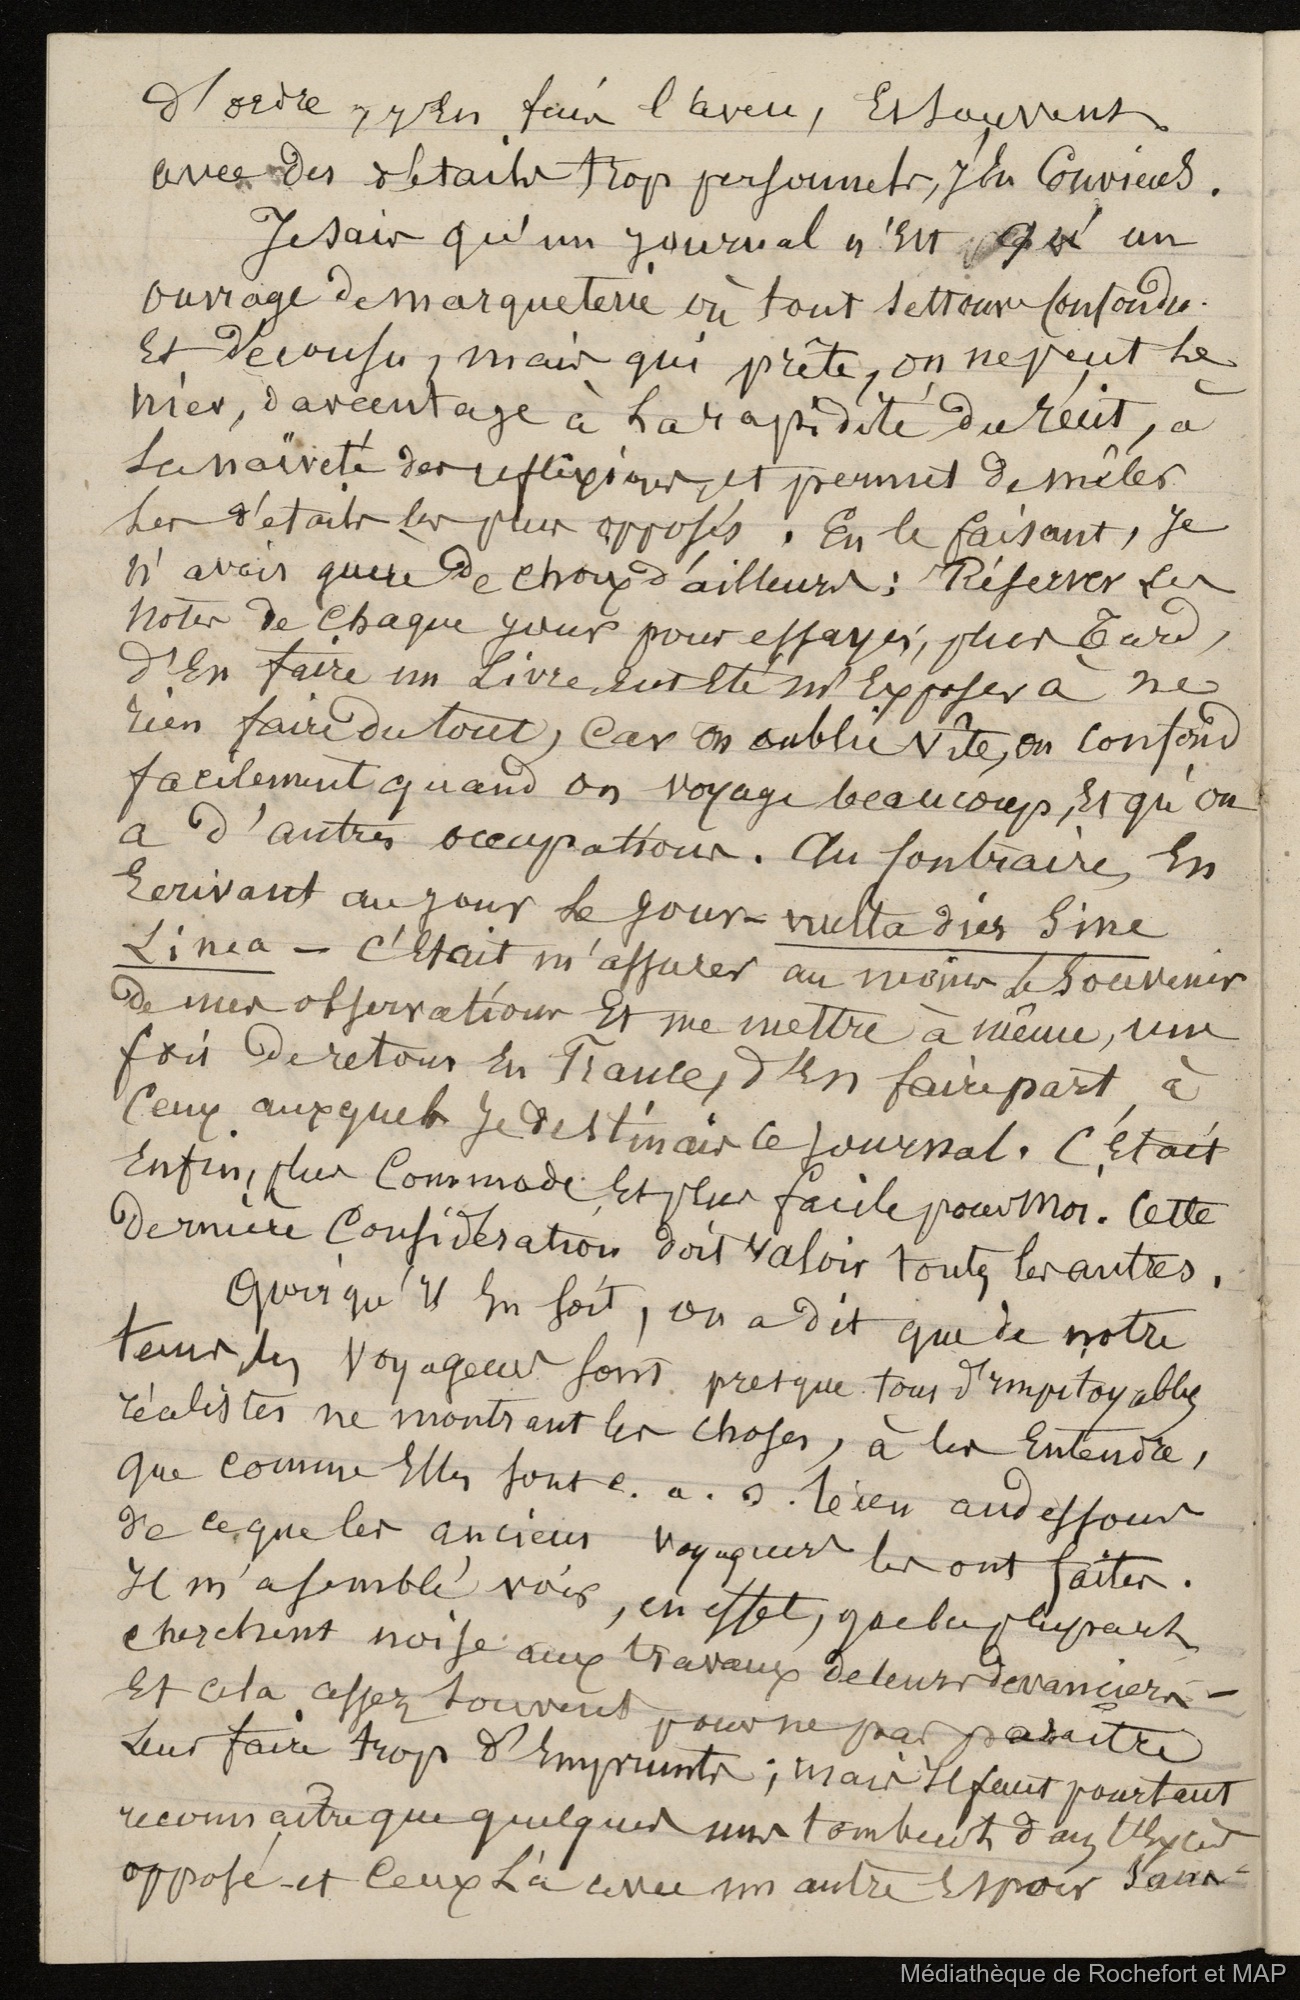 d'ordre, j'en fais l'aveu, et souvent
avec des détails trop personnels, j'en conviens.
Je sais qu'un journal n'est qu'un
ouvrage de marqueterie où tout se trouve confondu
et décousu, mais qui prête, on ne peut le
nier, davantage à la rapidité du récit, à
la naïveté des réflexions, et permet de mêler
les détails les plus opposés. En le faisant, je
n'avais guère de choix d'ailleurs : Réserver les
notes de chaque jour pour essayer, plus tard,
d'en faire un livre eut été m'exposer à ne
rien faire du tout, car on oublie vite, on confond
facilement quand on voyage beaucoup, et qu'on
a d'autres occupations. Au contraire, en
écrivant au jour le jour – nulla dies sine
linea – c'était m'assurer au moins le souvenir
de mes observations et me mettre à même, une
fois de retour en France, d'en faire part à
ceux auxquels je destinais ce journal. C'était
enfin, plus commode et plus facile pour moi. Cette
dernière considération doit valoir toutes les autres.
Quoiqu'il en soit, on a dit que de notre
temps, les voyageurs sont presque tous d'impitoyables
réalistes ne montrant les choses, à les entendre,
que comme elles sont c. a. d. bien au dessous
de ce que les anciens voyageurs les ont faites.
Il m'a semblé voir, en effet, que la plupart
cherchent noise aux travaux de leurs devanciers –
et cela assez souvent pour ne pas paraître
leur faire trop d'emprunts ; mais il faut pourtant
reconnaître que quelques uns tombent dans l'excès
opposé et ceux là avec un autre espoir sans
Médiathèque de Rochefort et MAP